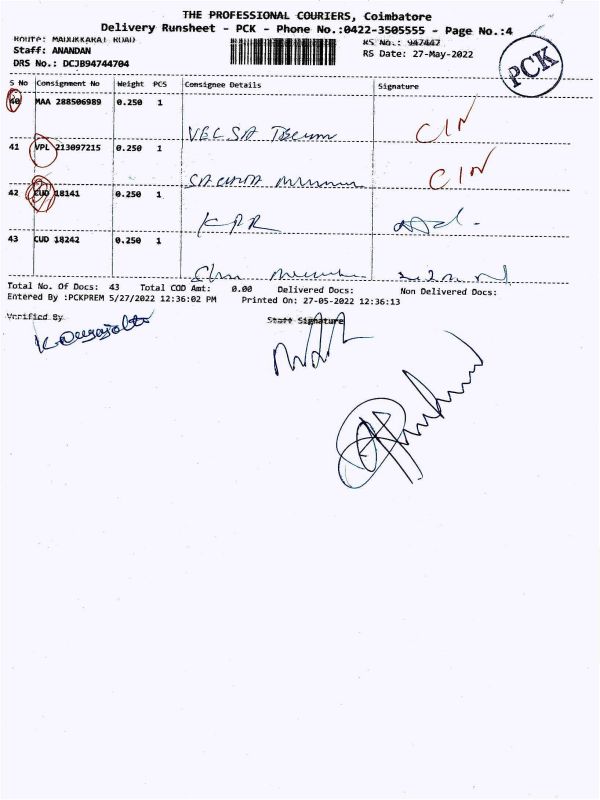 THE PROFESSIONAL COURIERS, Coimbatore
Delivery Runsheet - PCK - Phone No.:0422-3505555 - Page No.:4
Route: MADUKKARAI ROAD
RS No.: 947447
Staff: ANANDAN
RS Date: 27-May-2022
DRS No.: DCJB94744704
PCK
S No Consignment No Weight PCS Consignee Details Signature
40 MAA 288506989 0.250 1
CIN
41 VPL 213097215 0.250 1
CIN
42 CUD 18141 0.250 1
KPR
43 CUD 18242 0.250 1
Total No. Of Docs: 43 Total COD Amt: 0.00 Delivered Docs: Non Delivered Docs:
Entered By :PCKPREM 5/27/2022 12:36:02 PM Printed On: 27-05-2022 12:36:13
Verified By Staff Signature